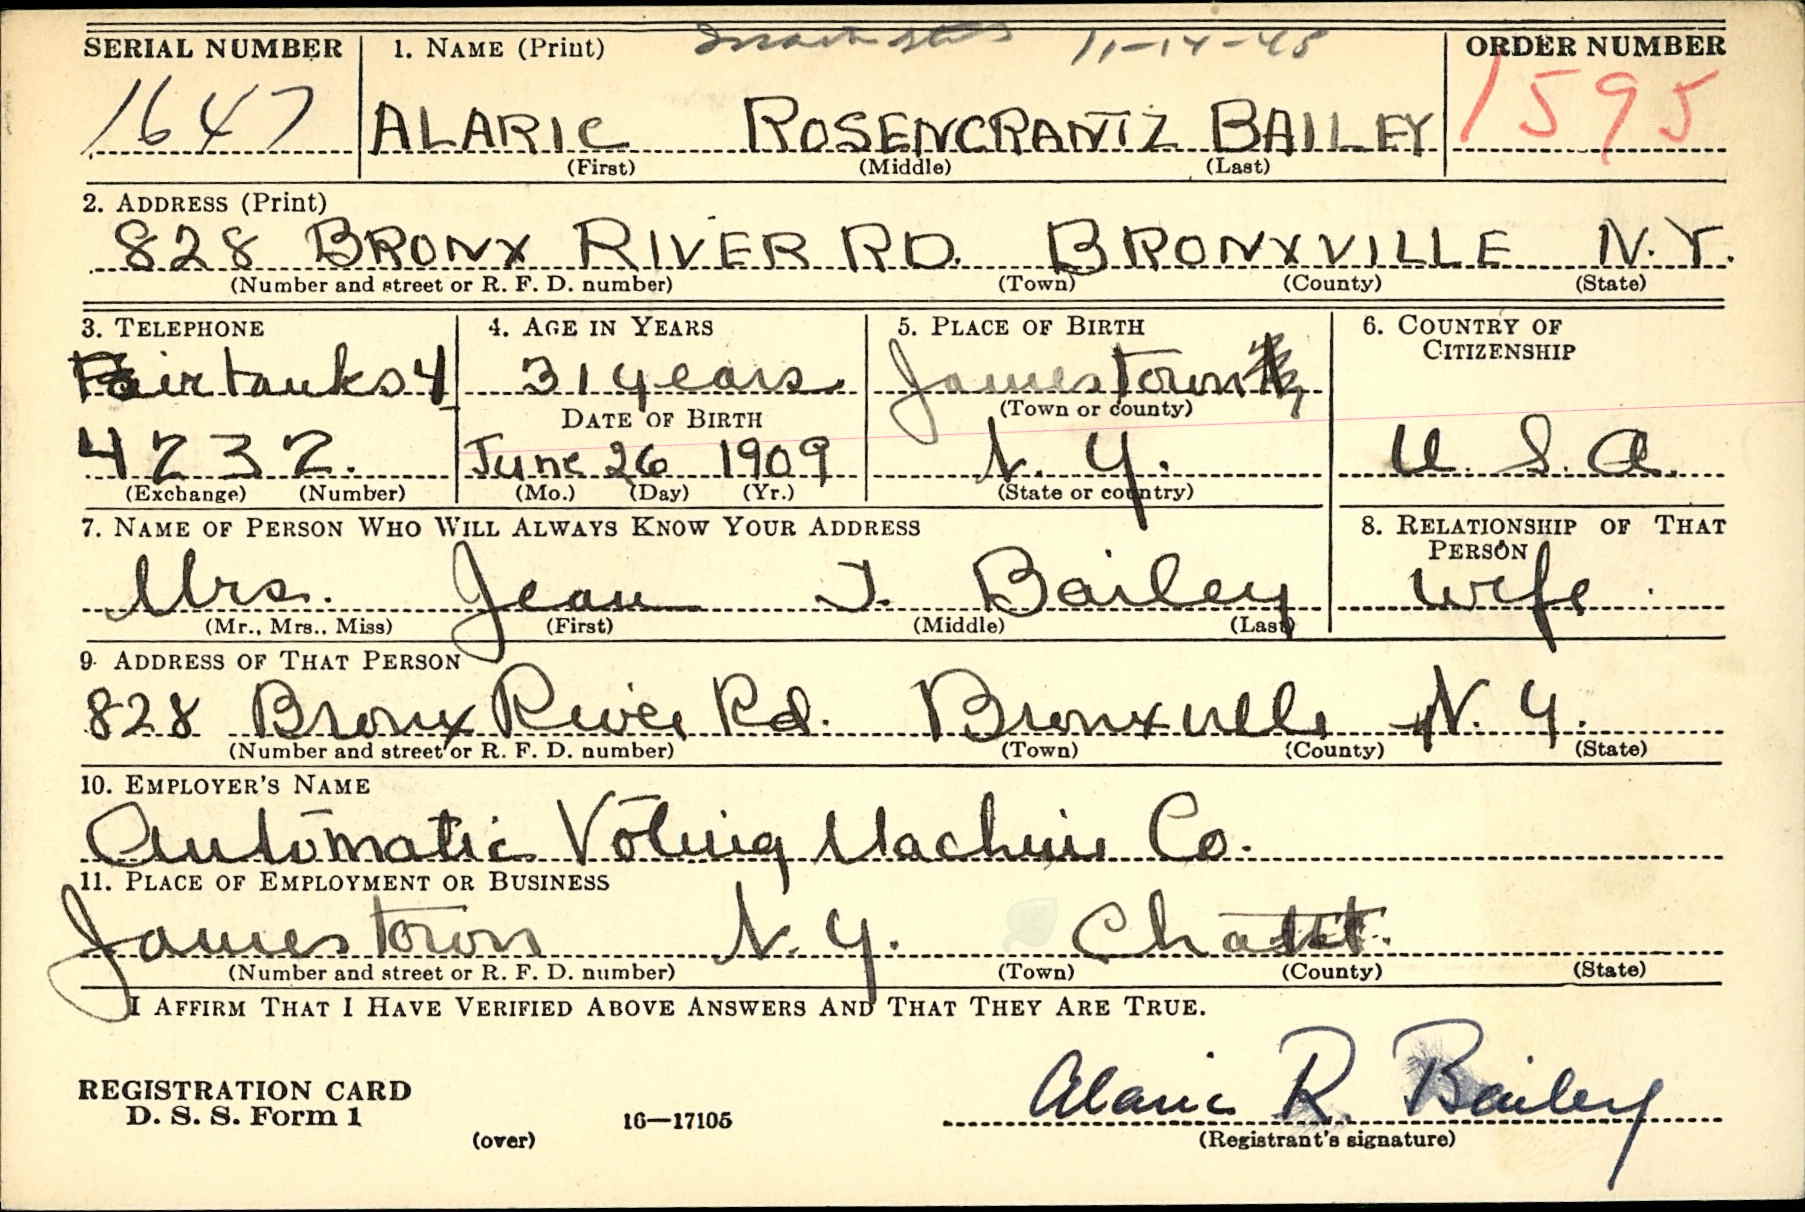 11-14-45
SERIAL NUMBER 1. NAME (Print) ORDER NUMBER
1647 ALARIC ROSENCRANTZ BAILEY 1595
(First) (Middle) (Last)
2. ADDRESS (Print)
828 BRONX RIVER RD. BRONXVILLE N.Y.
(Number and street or R. F. D. number) (Town) (County) (State)
3. TELEPHONE 4. AGE IN YEARS 5. PLACE OF BIRTH 6. COUNTRY OF
CITIZENSHIP
Fairbanks 4 31 years Jamestown
DATE OF BIRTH (Town or county)
4232. June 26 1909 N. Y. U. S. A.
(Exchange) (Number) (Mo.) (Day) (Yr.) (State or country)
7. NAME OF PERSON WHO WILL ALWAYS KNOW YOUR ADDRESS 8. RELATIONSHIP OF THAT
PERSON
Mrs. Jean J. Bailey wife
(Mr., Mrs., Miss) (First) (Middle) (Last)
9. ADDRESS OF THAT PERSON
828 Bronx River Rd. Bronxville N. Y.
(Number and street or R. F. D. number) (Town) (County) (State)
10. EMPLOYER'S NAME
Automatic Voting Machine Co.
11. PLACE OF EMPLOYMENT OR BUSINESS
Jamestown N. Y.
(Number and street or R. F. D. number) (Town) (County) (State)
I AFFIRM THAT I HAVE VERIFIED ABOVE ANSWERS AND THAT THEY ARE TRUE.
REGISTRATION CARD
D. S. S. Form 1 16—17105 Alaric R. Bailey
(over) (Registrant's signature)